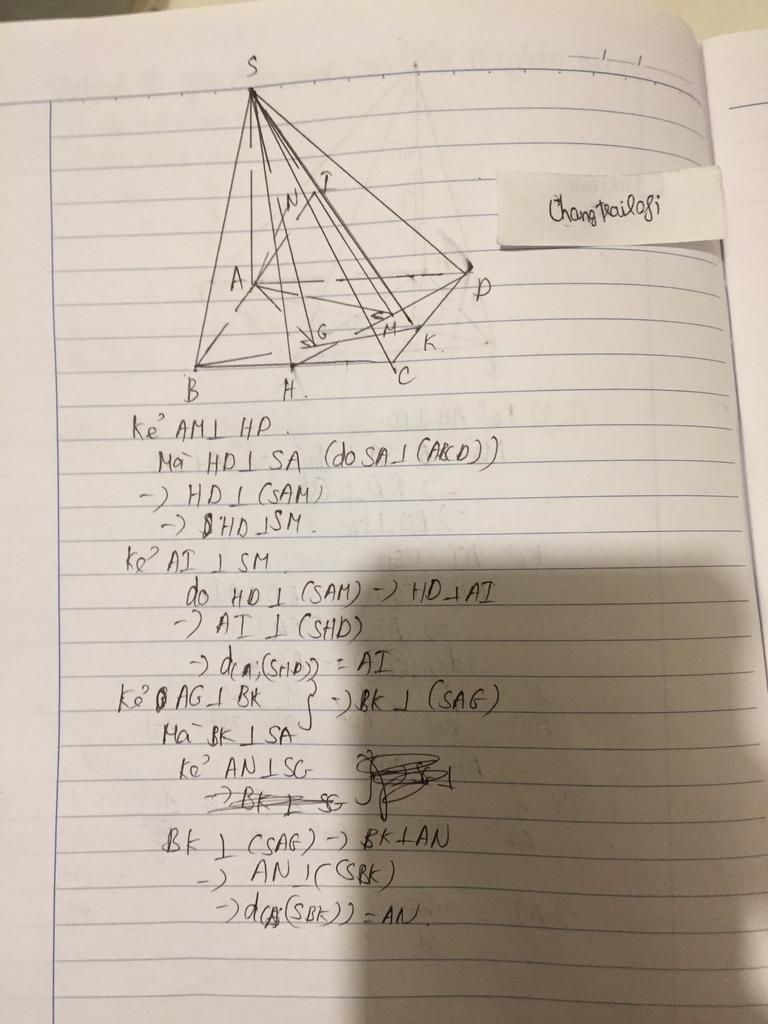 S
Changtrailofi
N
I
A
D
G
M
K
B
H
C
Kẻ AM⊥ HD.
Mà HD⊥ SA (do SA⊥(ABCD))
-) HD⊥ (SAM)
-) HD⊥SM.
Kẻ AI ⊥ SM.
do HD⊥ (SAM) -) HD⊥AI
-) AI ⊥ (SHD)
-) d(A;(SHD)) = AI
Kẻ AG⊥ BK } -) BK⊥ (SAG)
Mà BK⊥SA
Kẻ AN⊥SG
BK ⊥ (SAG) -) BK⊥AN
-) AN⊥(SBK)
-) d(A;(SBK)) = AN.